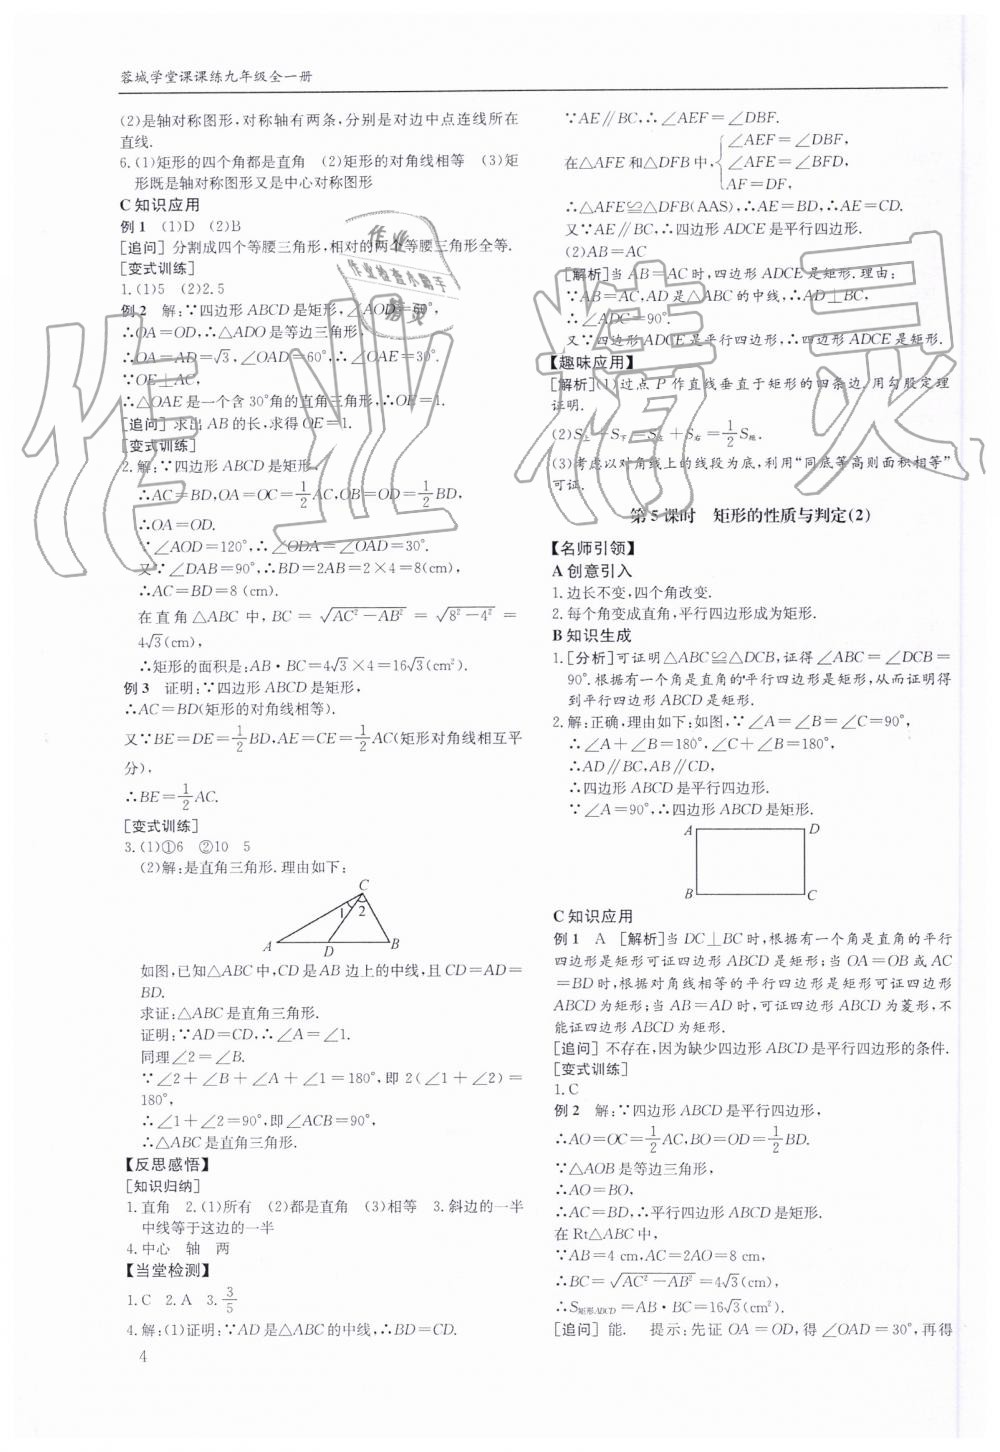 蓉城学堂课课练九年级全一册
(2)是轴对称图形,对称轴有两条,分别是对边中点连线所在
直线.
6.(1)矩形的四个角都是直角 (2)矩形的对角线相等 (3)矩
形既是轴对称图形又是中心对称图形
C 知识应用
例1 (1)D (2)B
[追问] 分割成四个等腰三角形,相对的两个等腰三角形全等.
[变式训练]
1.(1)5 (2)2.5
例2 解:∵四边形 ABCD 是矩形,∠AOD=60°,
∴OA=OD,∴△ADO 是等边三角形,
∴OA=AD=√3,∠OAD=60°,∴∠OAE=30°.
∵OE⊥AC,
∴△OAE 是一个含 30°角的直角三角形,∴OE=1.
[追问] 求出 AB 的长,求得 OE=1.
[变式训练]
2.解:∵四边形 ABCD 是矩形,
∴AC=BD,OA=OC=1/2AC,OB=OD=1/2BD,
∴OA=OD.
∵∠AOD=120°,∴∠ODA=∠OAD=30°.
又∵∠DAB=90°,∴BD=2AB=2×4=8(cm),
∴AC=BD=8 (cm).
在直角△ABC 中, BC = √(AC²-AB²) = √(8²-4²) =
4√3(cm),
∴矩形的面积是:AB·BC=4√3×4=16√3(cm²).
例3 证明:∵四边形 ABCD 是矩形,
∴AC=BD(矩形的对角线相等).
又∵BE=DE=1/2BD,AE=CE=1/2AC(矩形对角线相互平
分),
∴BE=1/2AC.
[变式训练]
3.(1)①6 ②10 5
(2)解:是直角三角形.理由如下:
C
1 2
A D B
如图,已知△ABC 中,CD 是 AB 边上的中线,且 CD=AD=
BD.
求证:△ABC 是直角三角形.
证明:∵AD=CD,∴∠A=∠1.
同理∠2=∠B.
∵∠2+∠B+∠A+∠1=180°,即 2(∠1+∠2)=
180°,
∴∠1+∠2=90°,即∠ACB=90°,
∴△ABC 是直角三角形.
【反思感悟】
[知识归纳]
1.直角 2.(1)所有 (2)都是直角 (3)相等 3.斜边的一半
中线等于这边的一半
4.中心 轴 两
【当堂检测】
1.C 2.A 3.3/5
4.解:(1)证明:∵AD 是△ABC 的中线,∴BD=CD.
4
∵AE∥BC,∴∠AEF=∠DBF.
在△AFE 和△DFB 中,{∠AEF=∠DBF,
∠AFE=∠BFD,
AF=DF,
∴△AFE≌△DFB(AAS),∴AE=BD,∴AE=CD.
又∵AE∥BC,∴四边形 ADCE 是平行四边形.
(2)AB=AC
[解析]当 AB=AC 时,四边形 ADCE 是矩形.理由:
∵AB=AC,AD 是△ABC 的中线,∴AD⊥BC,
∴∠ADC=90°.
又∵四边形 ADCE 是平行四边形,∴四边形 ADCE 是矩形.
【趣味应用】
[解析](1)过点 P 作直线垂直于矩形的四条边.用勾股定理
证明.
(2)S上+S下=S左+S右=1/2S矩.
(3)考虑以对角线上的线段为底,利用“同底等高则面积相等”
可证.
第5课时 矩形的性质与判定(2)
【名师引领】
A 创意引入
1.边长不变,四个角改变.
2.每个角变成直角,平行四边形成为矩形.
B 知识生成
1.[分析]可证明△ABC≌△DCB,证得∠ABC=∠DCB=
90°.根据有一个角是直角的平行四边形是矩形,从而证明得
到平行四边形 ABCD 是矩形.
2.解:正确,理由如下:如图,∵∠A=∠B=∠C=90°,
∴∠A+∠B=180°,∠C+∠B=180°,
∴AD∥BC,AB∥CD,
∴四边形 ABCD 是平行四边形.
∵∠A=90°,∴四边形 ABCD 是矩形.
A D
B C
C 知识应用
例1 A [解析]当 DC⊥BC 时,根据有一个角是直角的平行
四边形是矩形可证四边形 ABCD 是矩形;当 OA=OB 或 AC
=BD 时,根据对角线相等的平行四边形是矩形可证四边形
ABCD 为矩形;当 AB=AD 时,可证四边形 ABCD 为菱形,不
能证四边形 ABCD 为矩形.
[追问] 不存在,因为缺少四边形 ABCD 是平行四边形的条件.
[变式训练]
1.C
例2 解:∵四边形 ABCD 是平行四边形,
∴AO=OC=1/2AC,BO=OD=1/2BD.
∵△AOB 是等边三角形,
∴AO=BO,
∴AC=BD,∴平行四边形 ABCD 是矩形.
在 Rt△ABC 中,
∵AB=4 cm,AC=2AO=8 cm,
∴BC=√(AC²-AB²)=4√3(cm),
∴S矩形ABCD=AB·BC=16√3(cm²).
[追问] 能. 提示:先证 OA=OD,得∠OAD=30°,再得
作业精灵
作业
作业检查小助手
精灵